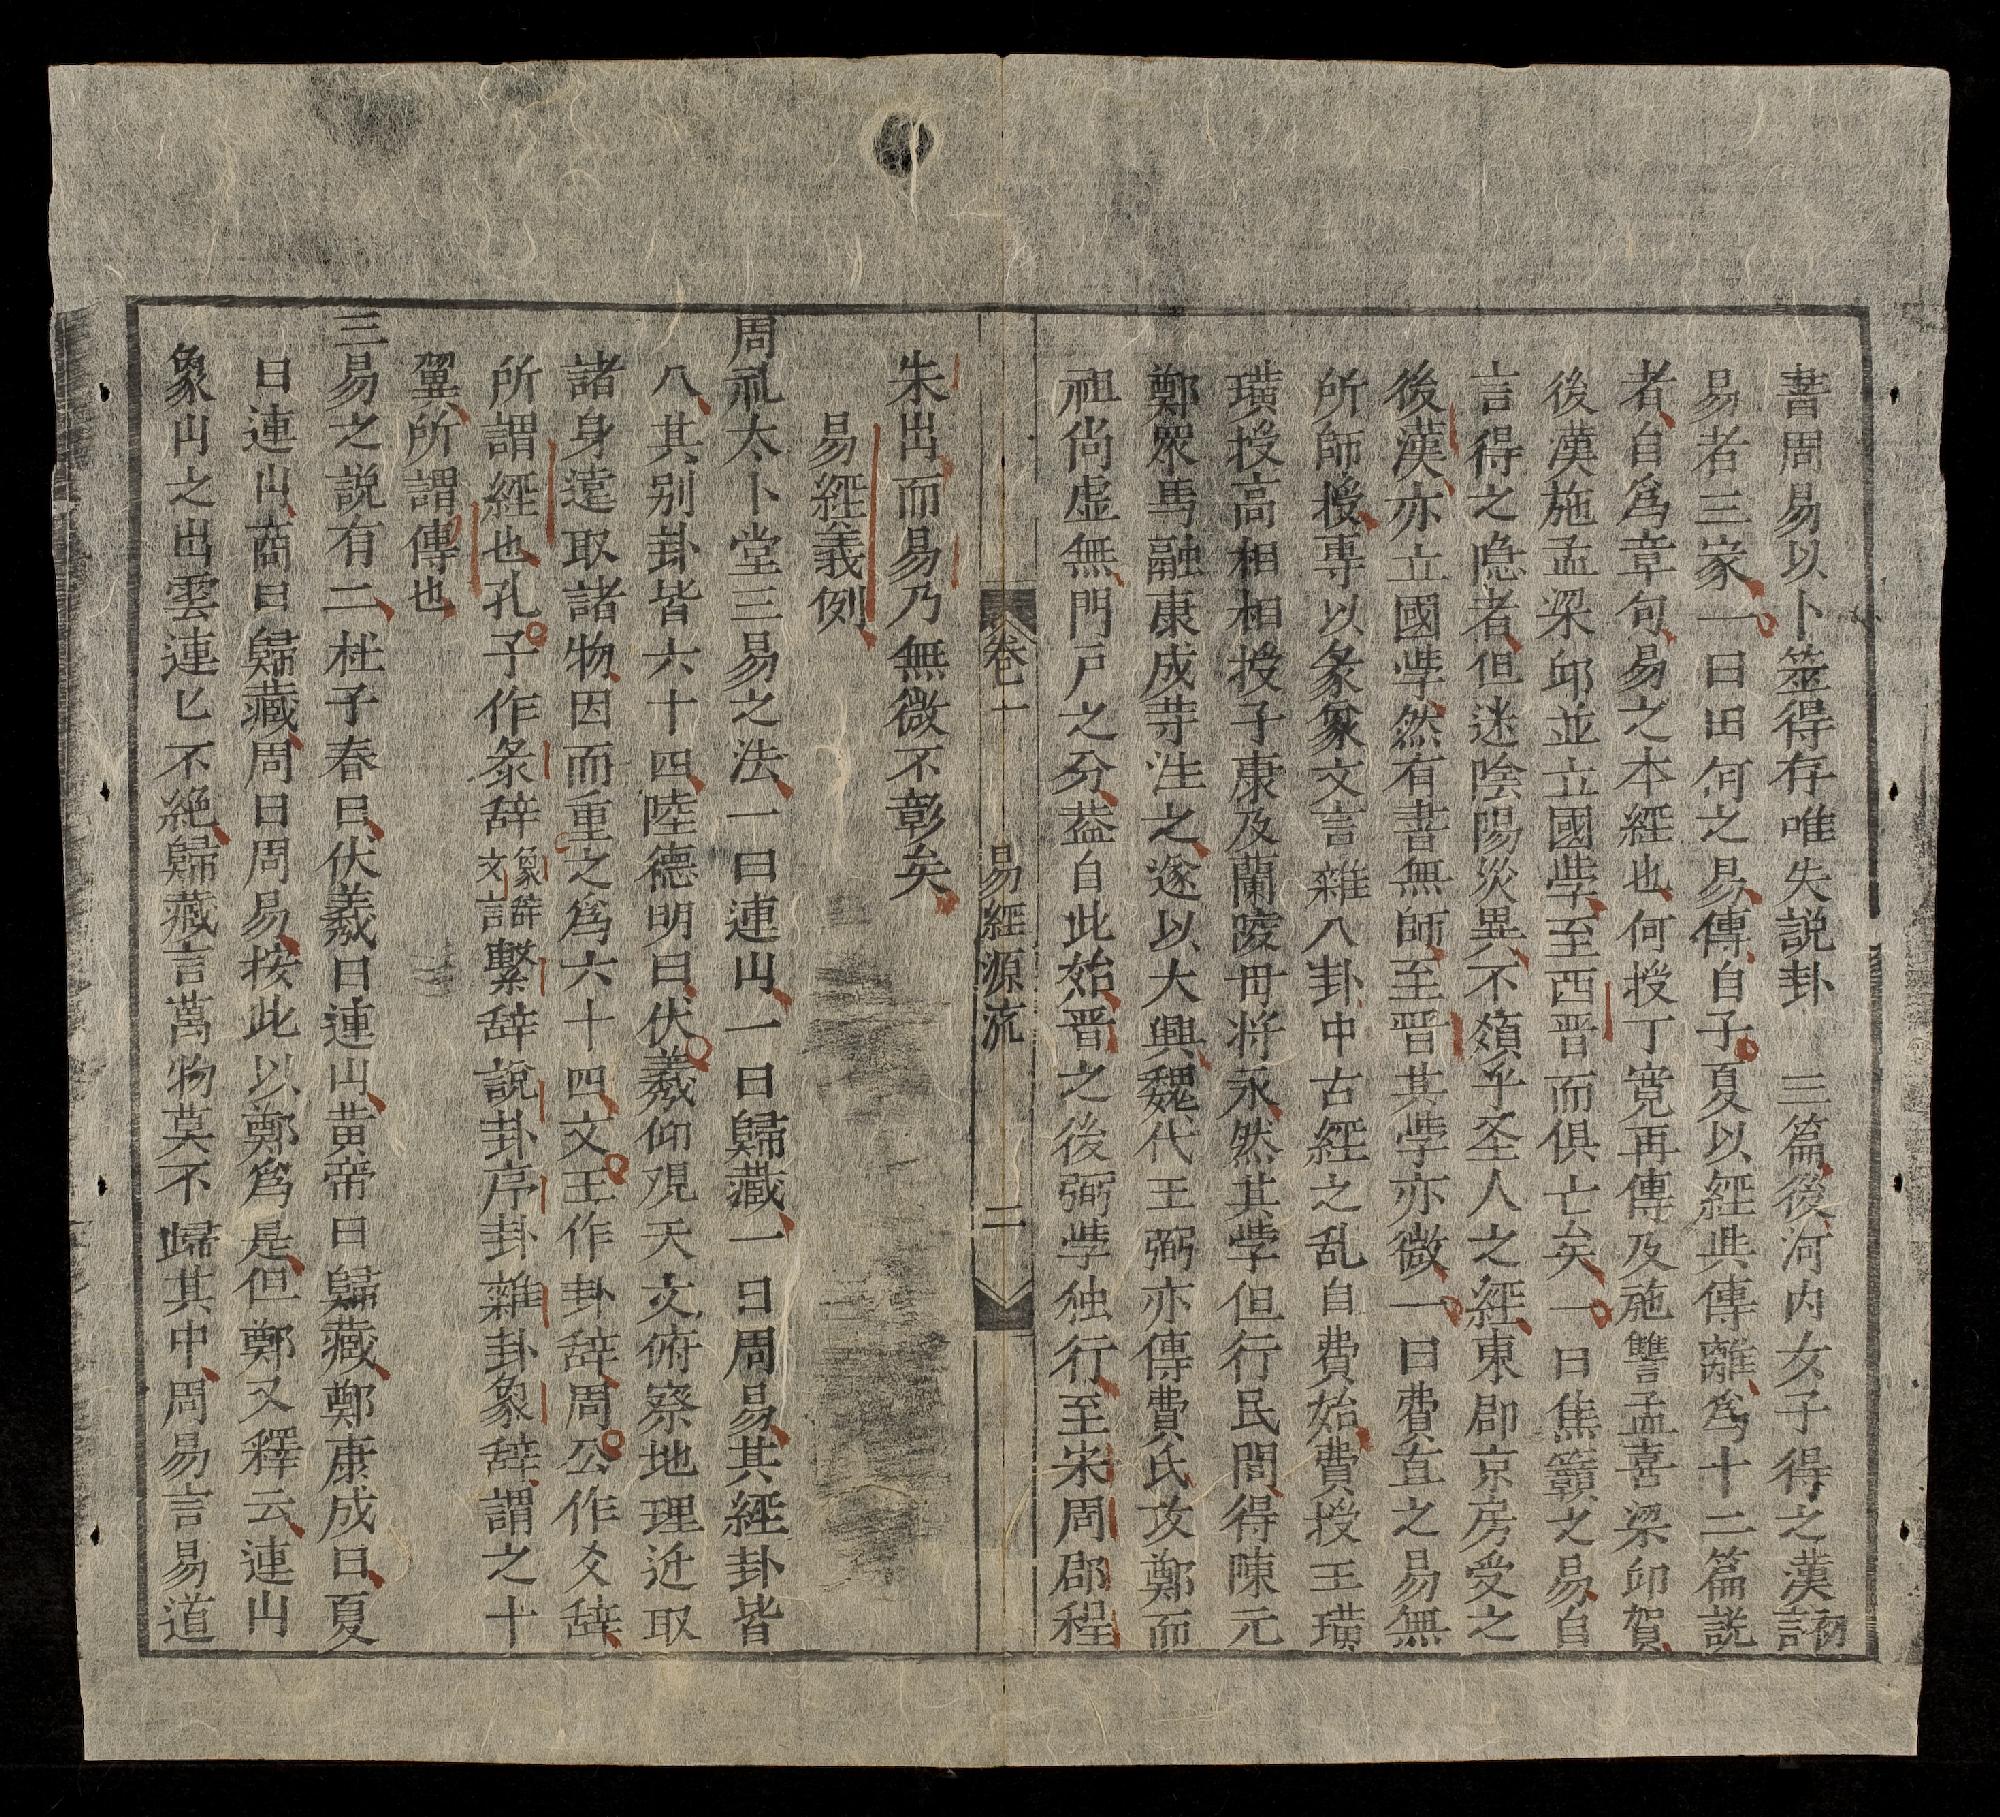 書周易以卜筮得存唯失説卦　三篇後河内女子得之漢初言
易者三家一曰田何之易傳自子夏以經典傳離爲十二篇説
者自爲章句易之本經也何授丁寬再傳及施讐孟喜梁邱賀
後漢施孟梁邱並立國学至西晋而俱亡矣一曰焦贛之易自
言得之隐者但迷陰陽災異不類乎圣人之經東郡京房受之
後漢亦立國学然有書無師至晋其学亦微一曰費直之易無
所師授專以彖象文言雜八卦中古經之乱自費始費授王璜
璜授高相相授子康及蘭陵毋将永然其学但行民間得陳元
鄭眾馬融康成等注之遂以大興魏代王弼亦傳費氏攻鄭而
祖尚虚無門戸之分葢自此始晋之後弼学独行至宋周邵程
卷一　易經源流　二
朱出而易乃無微不彰矣
易經義例
周礼太卜堂三易之法一曰連山一曰歸藏一曰周易其經卦皆
八其别卦皆六十四陸德明曰伏羲仰观天文俯察地理近取
諸身遠取諸物因而重之爲六十四文王作卦辞周公作爻辞
所謂經也孔子作彖辞象辞文言繫辞説卦序卦雜卦象辞謂之十
翼所謂傳也
三易之説有二杜子春曰伏羲曰連山黄帝曰歸藏鄭康成曰夏
曰連山商曰歸藏周曰周易按此以鄭爲是但鄭又釋云連山
象山之出雲連匕不絶歸藏言萬物莫不歸其中周易言易道